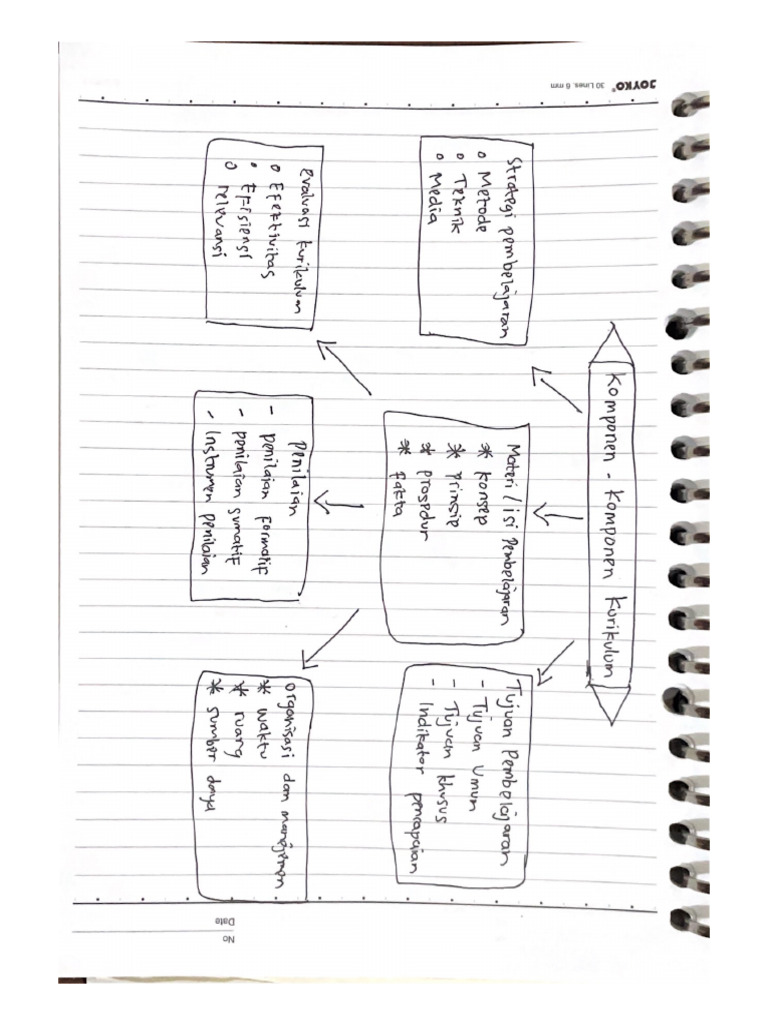 Komponen - Komponen Kurikulum
Strategi pembelajaran
o Metode
o Teknik
o Media
Materi / isi Pembelajaran
* konsep
* prinsip
* prosedur
* fakta
Tujuan Pembelajaran
- Tujuan Umum
- Tujuan khusus
- Indikator pencapaian
evaluasi kurikulum
o Efektivitas
• Efisiensi
o relevansi
Penilaian
- penilaian formatif
- penilaian sumatif
- Instrumen penilaian
organisasi dan manejemen
* waktu
* ruang
* sumber daya
JOYKO® 30 Lines, 6 mm
No
Date